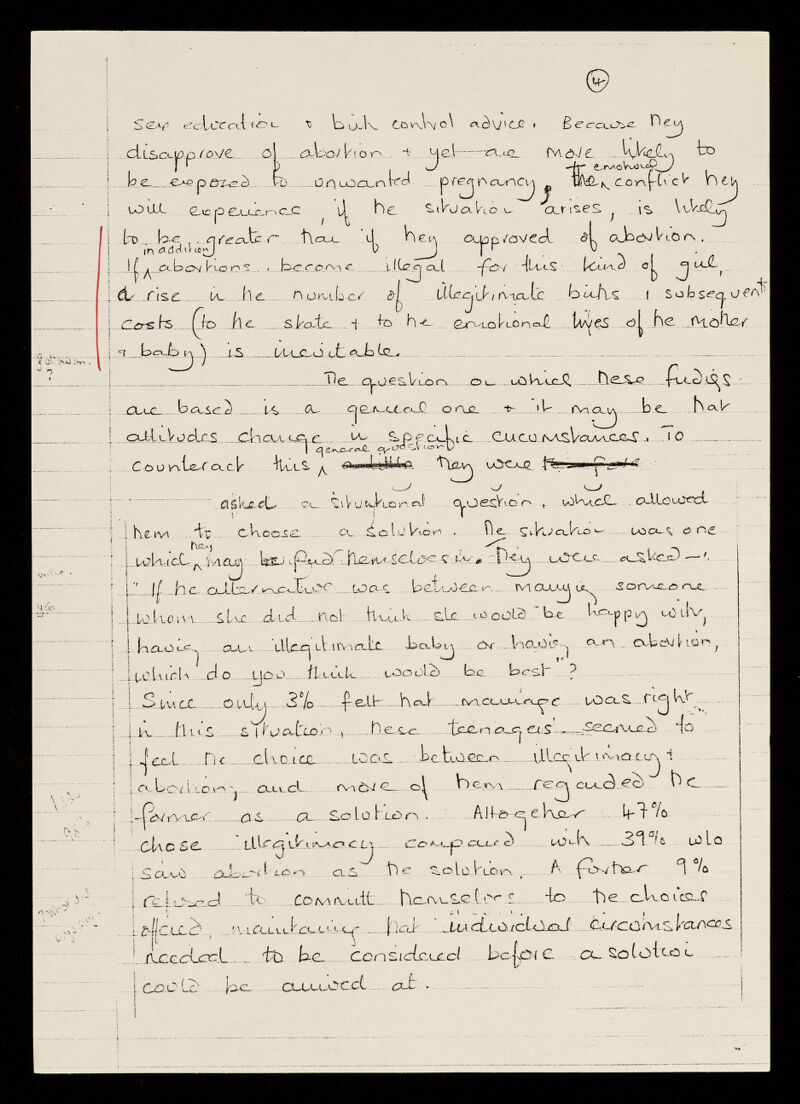 4
sex education & birth control advice. Because they
disapprove of abortion & yet are more likely to
be exposed to unwanted pregnancy, the emotional conflict they
will experience, if the situation arises, is likely
to be greater than if they approved of abortion.
If in addition abortions become illegal for this kind of girl,
a rise in the number of illegitimate births & subsequent
costs (to the state & to the emotional lives of the mother
& baby) is inevitable.
The question on which these findings
are based is a general one & it may be that
attitudes change in specific circumstances. To
counteract this general question they were
asked a situational question, which allowed
them to choose a solution. The situation was one
which they may find themselves in. They were asked —
"If the alternative was between marrying someone
whom she did not think she would be happy with,
having an illegitimate baby or having an abortion,
which do you think would be best"?
Since only 3% felt that marriage was right
in this situation, these teenagers seemed to
feel the choice was between illegitimacy &
abortion, and more of them regarded the
former as a solution. Altogether 47%
chose illegitimacy compared with 39% who
saw abortion as the solution. A further 9%
refused to committ themselves to the choices
offered, maintaining that individual circumstances
needed to be considered before a solution
could be arrived at.